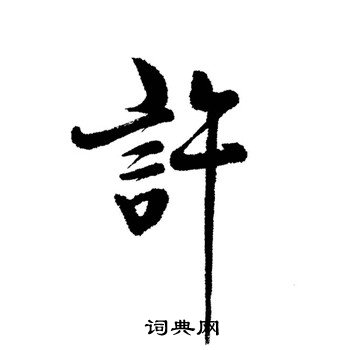 許
词典网